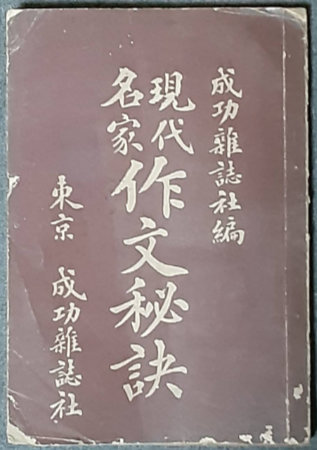 成功雜誌社編
現代名家作文秘訣
東京 成功雜誌社